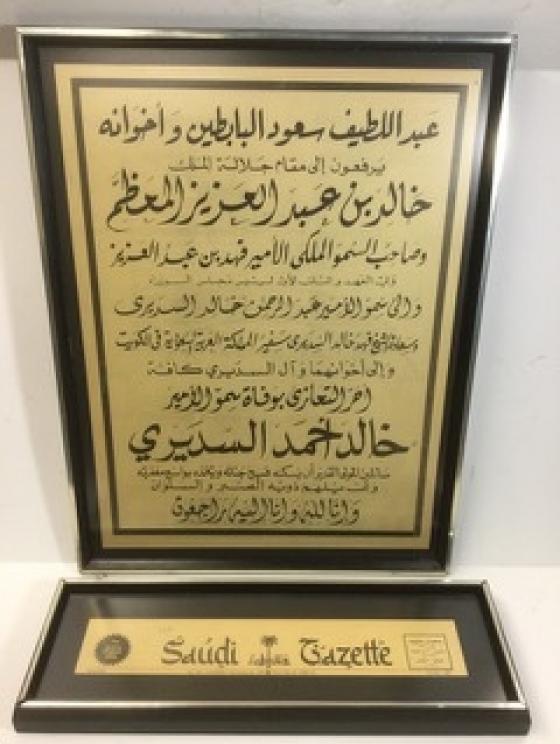 عبد اللطيف سعود البابطين وأخوانه
يرفعون إلى مقام جلالة الملك
خالد بن عبد العزيز المعظم
وصاحب السمو الملكي الأمير فهد بن عبد العزيز
ولي العهد والنائب الأول لرئيس مجلس الوزراء
والى سمو الأمير عبد الرحمن خالد السديري
فهد خالد السديري سفير المملكة العربية السعودية في الكويت
وإلى أخوانهما وآل السديري كافة
أحر التعازي بوفاة سمو الأمير
خالد أحمد السديري
المولى القدير أن يسكنه فسيح جناته
وأن يلهم ذويه الصبر والسلوان
وإنا لله وإنا إليه راجعون
Saudi Gazette